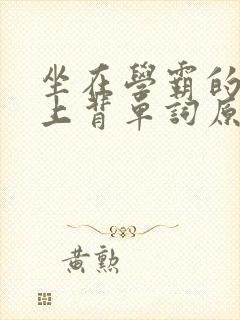 坐在學霸的
上背單詞原
黃勲